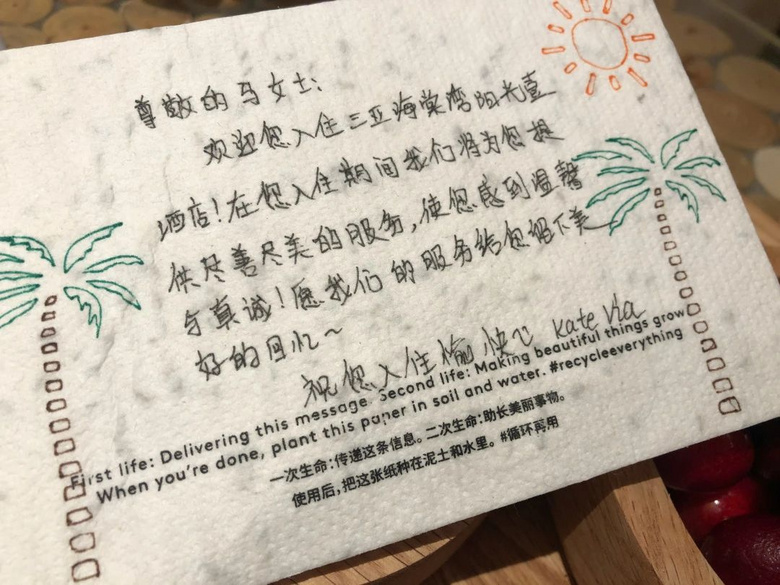 尊敬的马女士:
欢迎您入住三亚海棠湾阳光壹
酒店!在您入住期间我们将为您提
供尽善尽美的服务,使您感到温馨
与真诚!愿我们的服务给您留下美
好的回忆~
祝您入住愉快 Kate Via
First life: Delivering this message. Second life: Making beautiful things grow
When you're done, plant this paper in soil and water. #recycleeverything
一次生命:传递这条信息。二次生命:助长美丽事物。
使用后,把这张纸种在泥土和水里。#循环再用